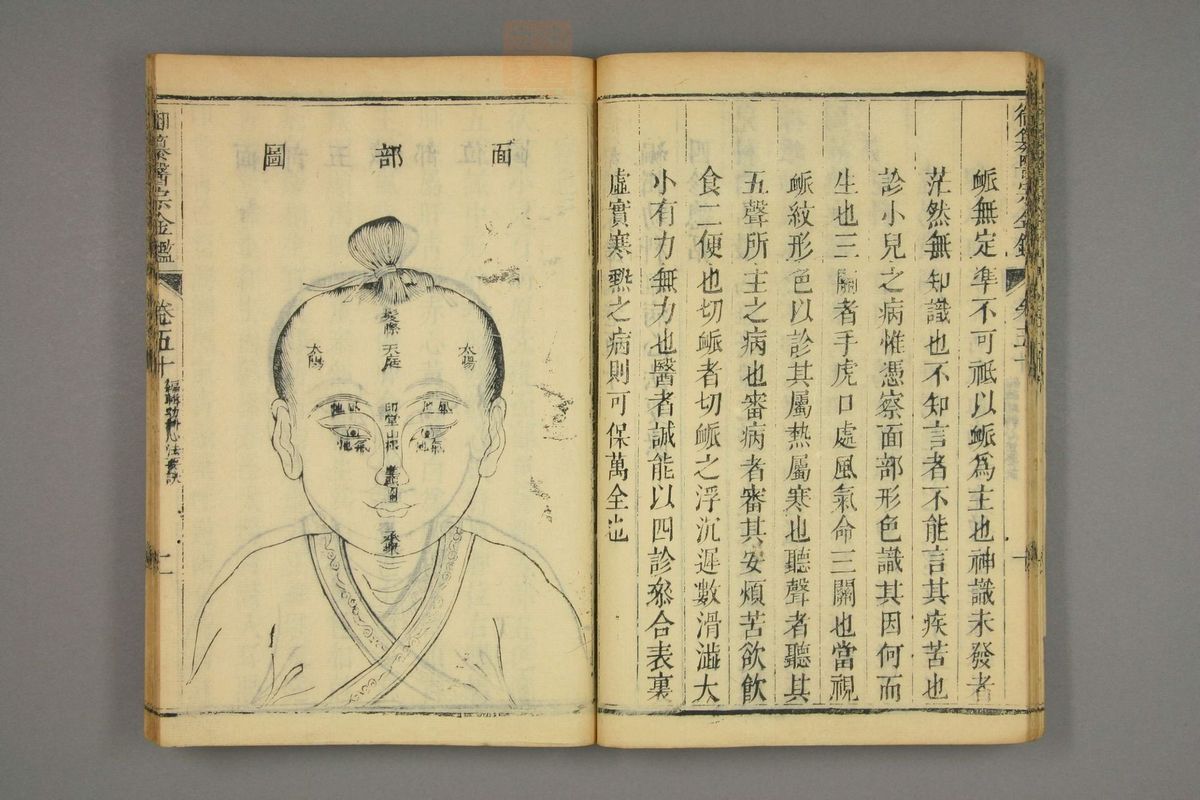 脈無定準不可祇以脈爲主也神識未發者
茫然無知識也不知言者不能言其疾苦也
診小兒之病惟憑察面部形色識其因何而
生也三關者手虎口處風氣命三關也當視
脈紋形色以診其屬熱屬寒也聽聲者聽其
五聲所主之病也審病者審其安煩苦欲飲
食二便也切脈者切脈之浮沉遲數滑澁大
小有力無力也醫者誠能以四診叅合表裏
虛實寒熱之病則可保萬全也
面部圖
髮際
天庭
太陽
太陽
印堂
山根
風池
風池
氣池
氣池
承漿
御纂醫宗金鑑
卷五十
編輯幼科心法要訣